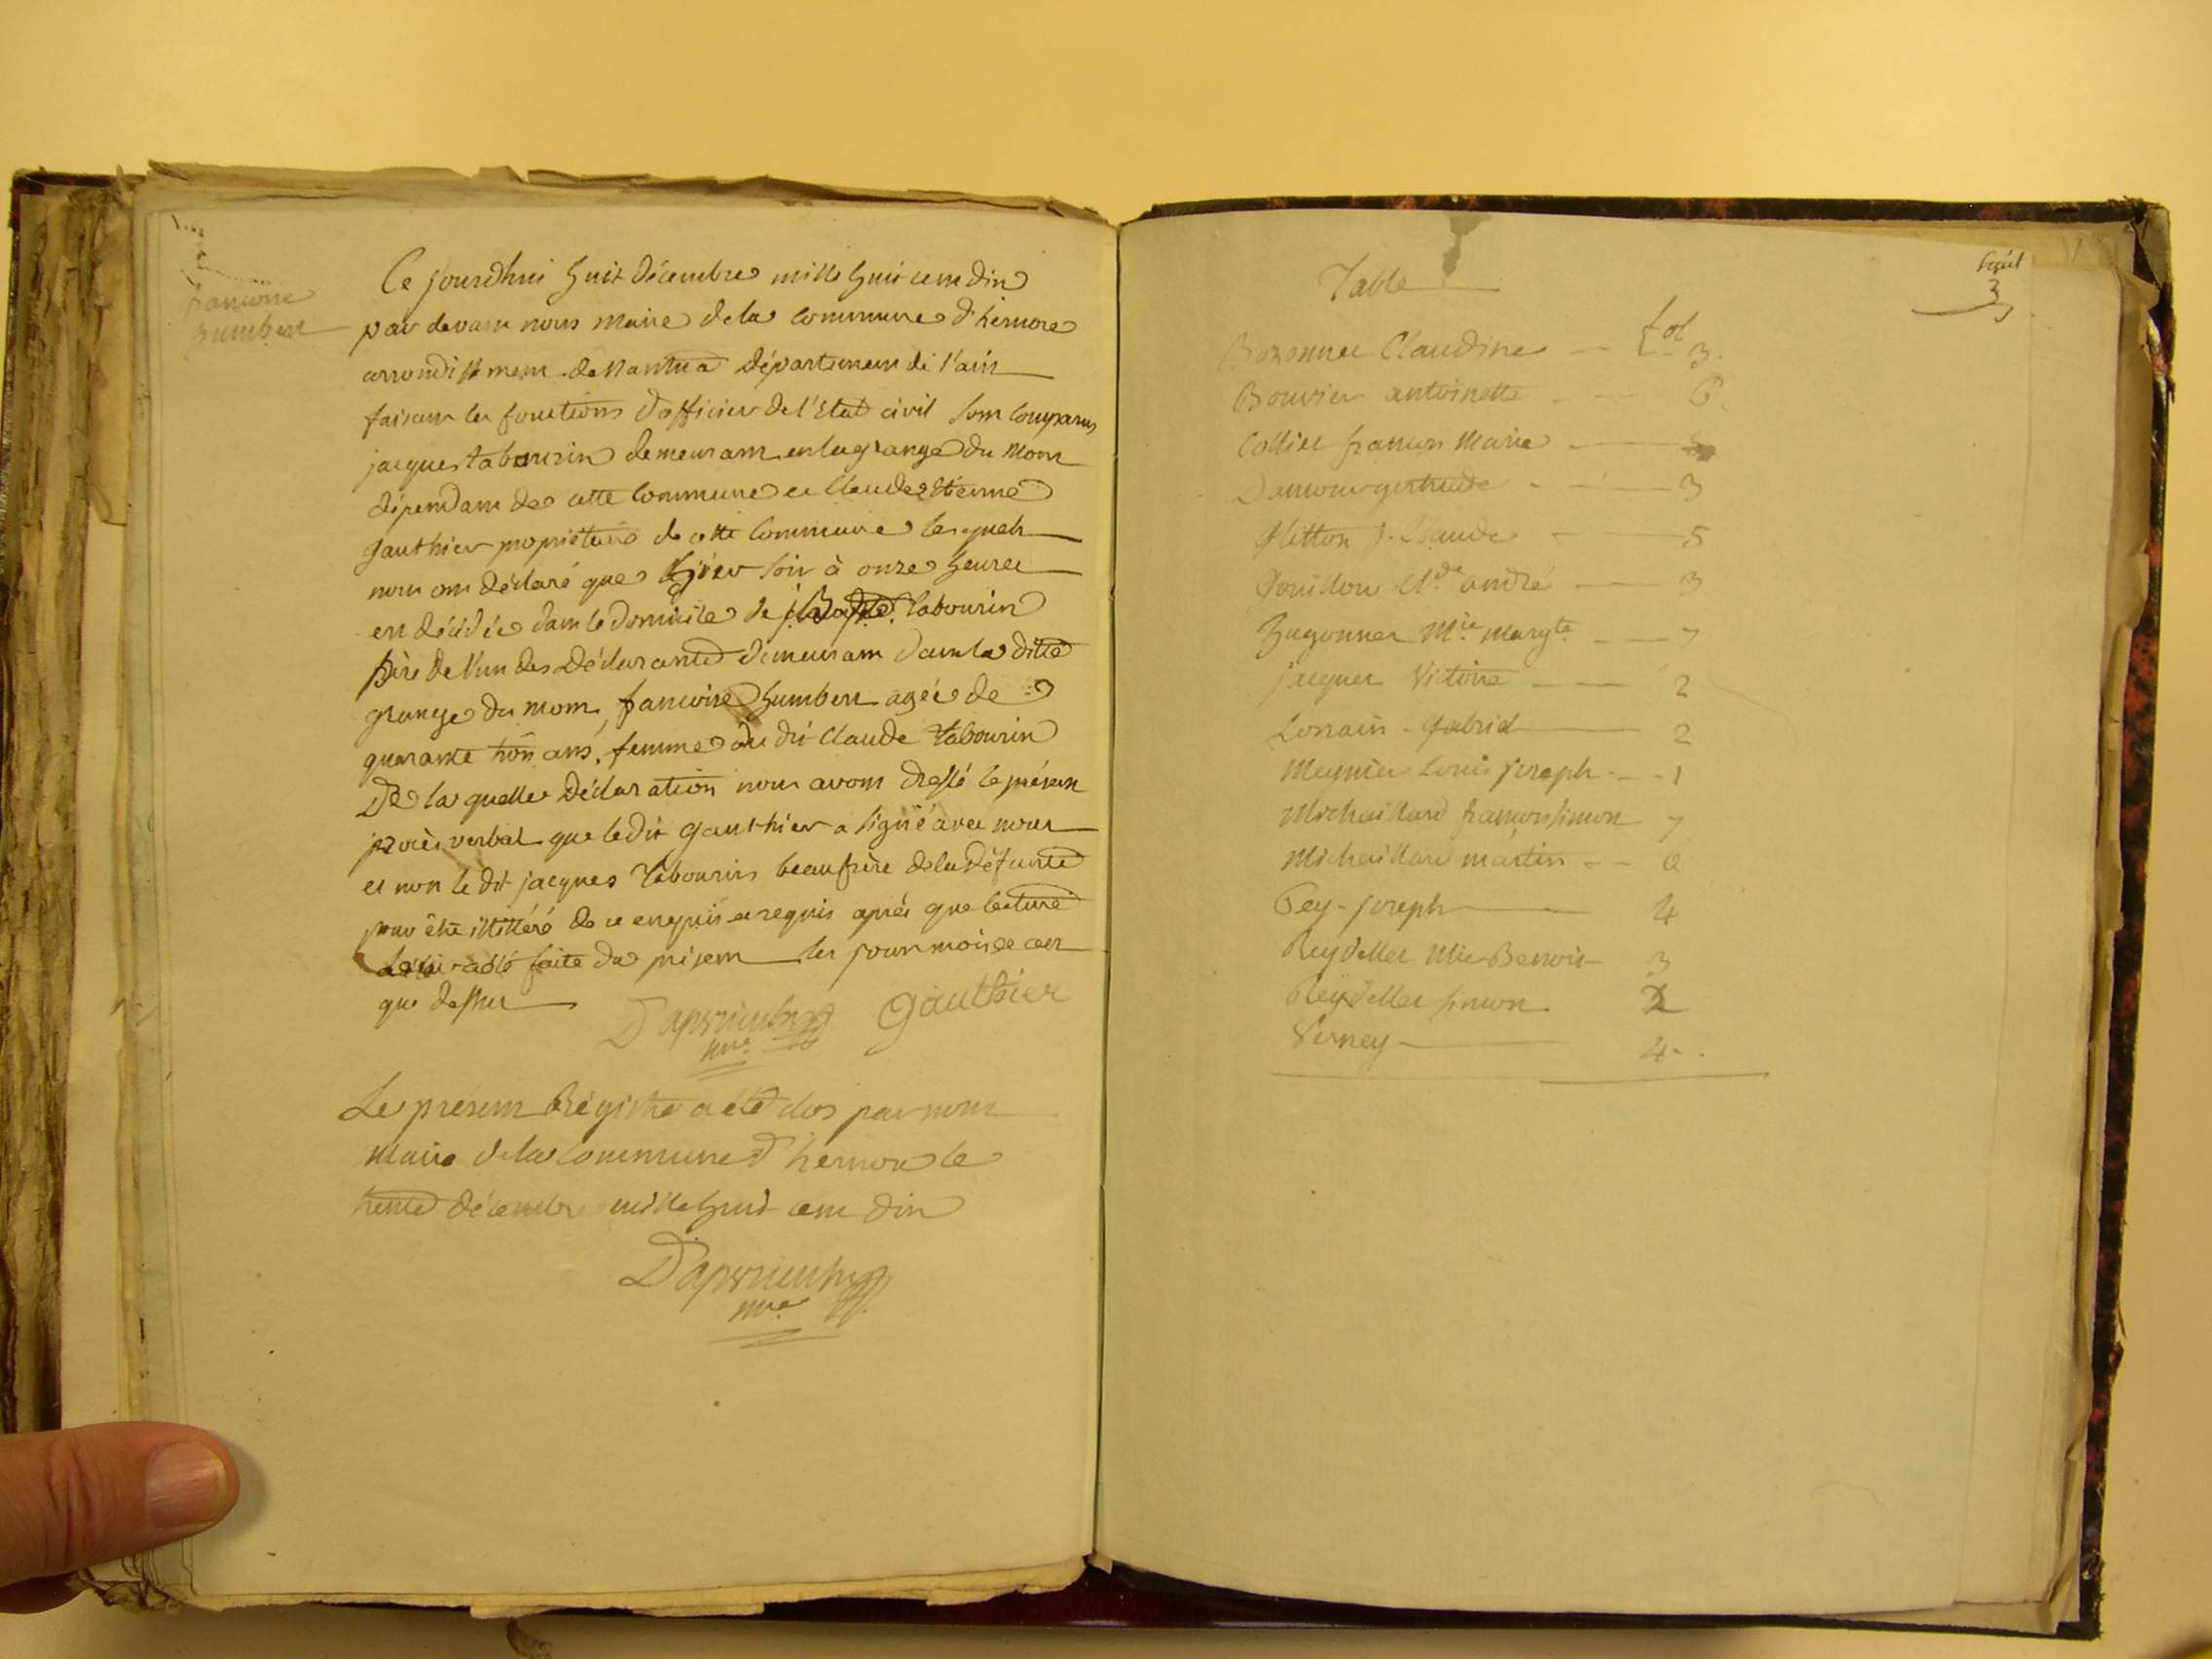 francoise
humbert
Ce jourdhui huit décembre mille huit cent dix
par devant nous maire de la commune d'hernore
arrondissement de nantua département de l'ain
faisant les fonctions d'officier de l'état civil sont comparus
jacques tabourin demeurant en la grange du mont
dépendant de cette commune et claude Etienne
gauthier propriétaire de cette commune lesquels
nous ont déclaré que hier soir à onze heures
est décédée dans le domicile de tabourin
père de l'un des déclarants demeurant dans la ditte
grange du mont, francoise humbert agée de
quarante trois ans, femme du dit claude tabourin
De la quelle déclaration nous avons dressé le présent
procès verbal que le dit gauthier a signé avec nous
et non le dit jacques tabourin beaufrère de la défunte
pour être illitéré de ce enquis et requis après que lecture
a été faite du présent les jour mois et an
que dessus
gauthier
mre
Le présent Régistre a été clos par nous
Maire de la commune d'hernore le
trente décembre mille huit cent dix
mre
huit
3
Table
fol
Bozonnet Claudine — 3.
Bouvier antoinette — 6.
Collier francois Marie —
Damour gertrude — 3
Gletton j. Claude — 5
Gouillon Cl.de andré — 3
Hugonnet M.ie Marg.te — 7
jacquet Victoire — 2
Lorrain - gabriel — 2
Meynier Louis joseph - 1
Michaillard francois simon 7
Michaillard martin — 6
Pey - joseph — 4
Reydellet Mie Benoit - 3
Reydellet simon 2
Verney — 4.